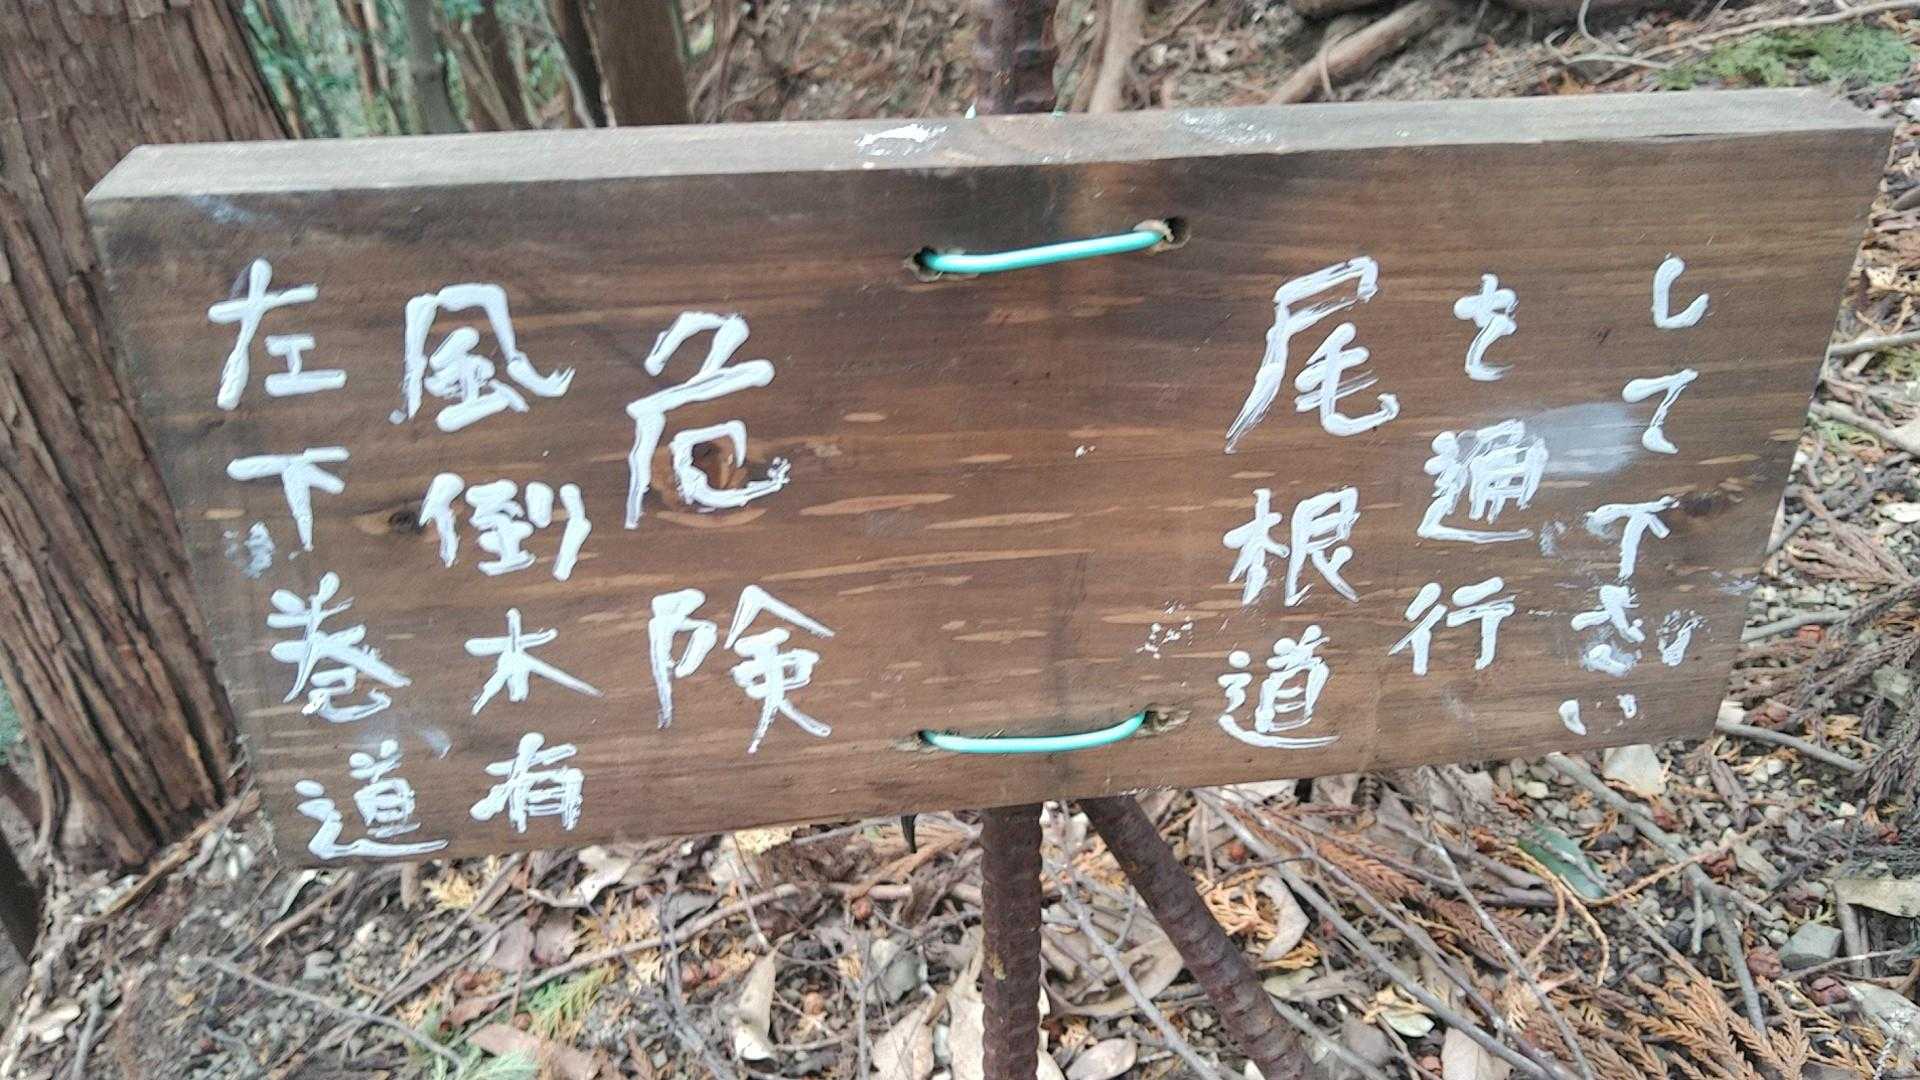 左下巻道
風倒木有
危険
尾根道
を通行
して下さい